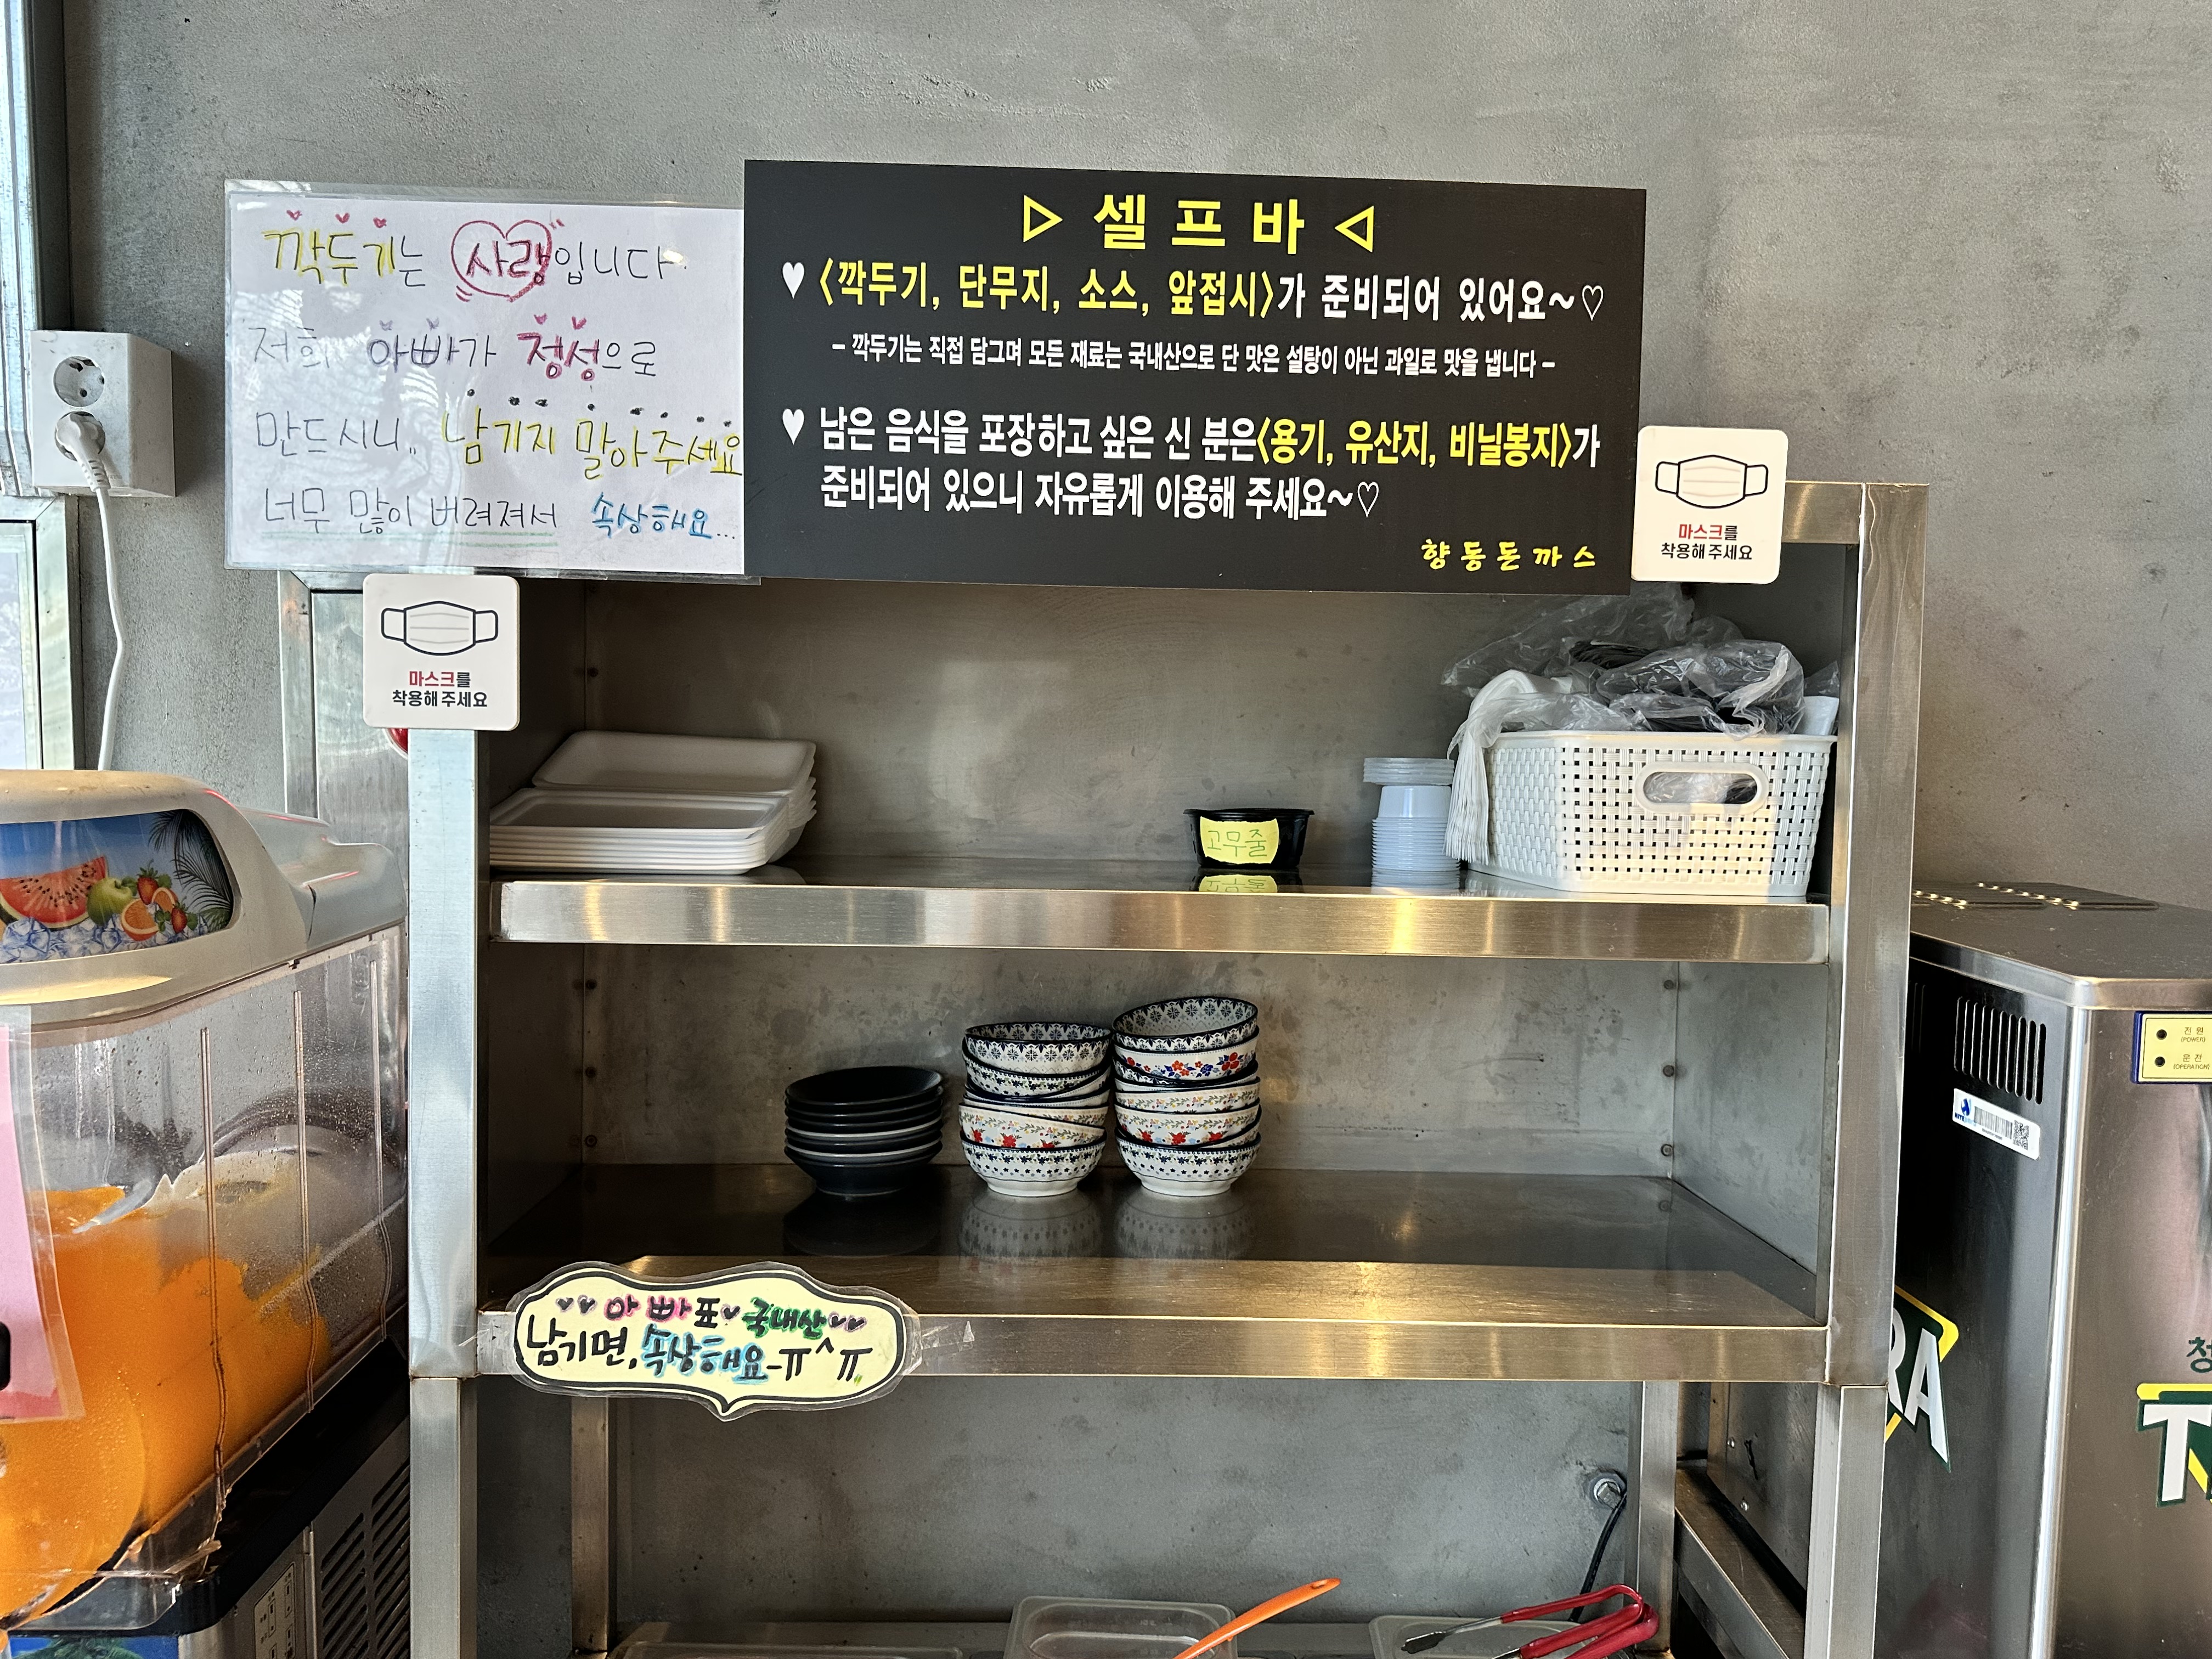 깍두기는 사랑입니다.
저희 아빠가 정성으로
만드시니.. 남기지 말아주세요
너무 많이 버려져서 속상해요...
▷ 셀프바 ◁
♥ <깍두기, 단무지, 소스, 앞접시>가 준비되어 있어요~♡
- 깍두기는 직접 담그며 모든 재료는 국내산으로 단 맛은 설탕이 아닌 과일로 맛을 냅니다 -
♥ 남은 음식을 포장하고 싶은 신 분은<용기, 유산지, 비닐봉지>가
준비되어 있으니 자유롭게 이용해 주세요~♡
향동돈까스
마스크를
착용해 주세요
마스크를
착용해 주세요
고무줄
전원
(POWER)
운전
(OPERATION)
♥♥ 아빠표♥ 국내산♥♥
남기면, 속상해요-ㅠ^ㅠ
RA
청
T